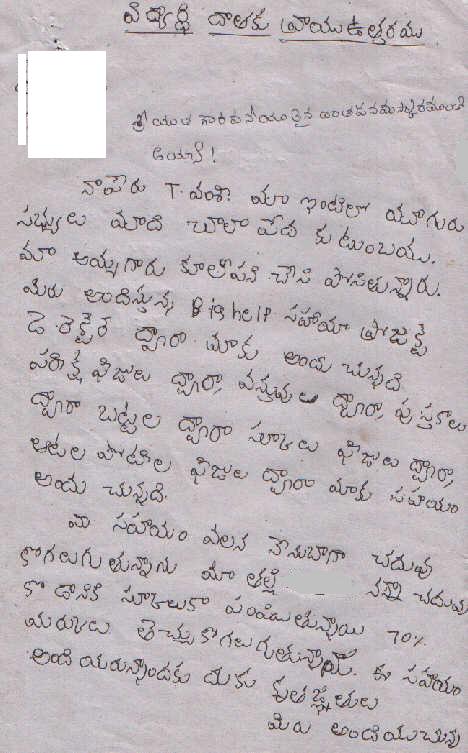 విద్యార్థి దాతకు వ్రాయు ఉత్తరము
శ్రీయుత గౌరవనీయులైన
అయ్యా!
నా పేరు T. వంశి. మా ఇంటిలో ముగురు
సభ్యులు మాది చాలా పేద కుటుంబము.
మా అయ్యగారు కూలిపని చేసి పోసితున్నారు.
మీరు అందిస్తున్న Big help సహాయ ప్రాజెక్ట్
డైరెక్టర్ ద్వారా మాకు అందుచున్నది
పరీక్ష ఫీజులు ద్వారా, వస్తువులు ద్వారా, పుస్తకాలు
ద్వారా బట్టల ద్వారా స్కూలు ఫీజులు ద్వారా,
ఆటల పోటీల ఫీజులు ద్వారా మాకు సహాయం
అందుచున్నది.
మీ సహాయం వలన నేను బాగా చదువు
కొగలుగుతున్నాను మా తల్లి నన్ను చదువు
కొడానికి స్కూలుకు పంపిచుతున్నాయి 70%
మార్కులు తెచ్చుకొగలుగుతున్నాను. ఈ సహాయం
అందియరున్నందకు మీకు కృతజ్ఞతలు
మీరు అందియుచున్న